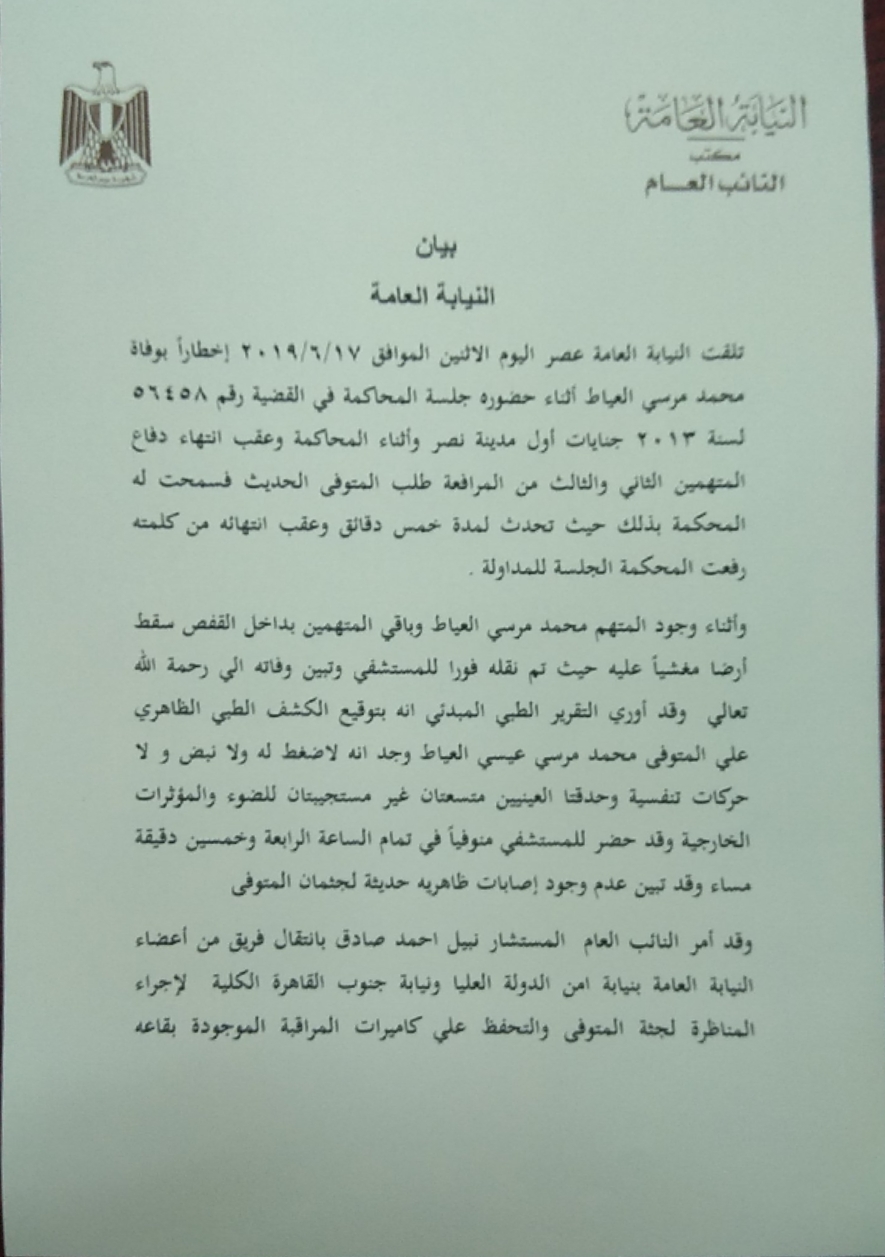 النيابة العامة
مكتب
النائب العـــام
بيان
النيابة العامة
تلقت النيابة العامة عصر اليوم الاثنين الموافق ٢٠١٩/٦/١٧ إخطاراً بوفاة
محمد مرسي العياط أثناء حضوره جلسة المحاكمة في القضية رقم ٥٦٤٥٨
لسنة ٢٠١٣ جنايات أول مدينة نصر وأثناء المحاكمة وعقب انتهاء دفاع
المتهمين الثاني والثالث من المرافعة طلب المتوفى الحديث فسمحت له
المحكمة بذلك حيث تحدث لمدة خمس دقائق وعقب انتهائه من كلمته
رفعت المحكمة الجلسة للمداولة .
وأثناء وجود المتهم محمد مرسي العياط وباقي المتهمين بداخل القفص سقط
أرضا مغشياً عليه حيث تم نقله فورا للمستشفي وتبين وفاته الي رحمة الله
تعالي وقد أوري التقرير الطبي المبدئي انه بتوقيع الكشف الطبي الظاهري
علي المتوفى محمد مرسي عيسي العياط وجد انه لاضغط له ولا نبض و لا
حركات تنفسية وحدقتا العينيين متسعتان غير مستجيبتان للضوء والمؤثرات
الخارجية وقد حضر للمستشفي متوفياً في تمام الساعة الرابعة وخمسين دقيقة
مساء وقد تبين عدم وجود إصابات ظاهريه حديثة لجثمان المتوفى
وقد أمر النائب العام المستشار نبيل احمد صادق بانتقال فريق من أعضاء
النيابة العامة بنيابة امن الدولة العليا ونيابة جنوب القاهرة الكلية لإجراء
المناظرة لجثة المتوفى والتحفظ علي كاميرات المراقبة الموجودة بقاعه